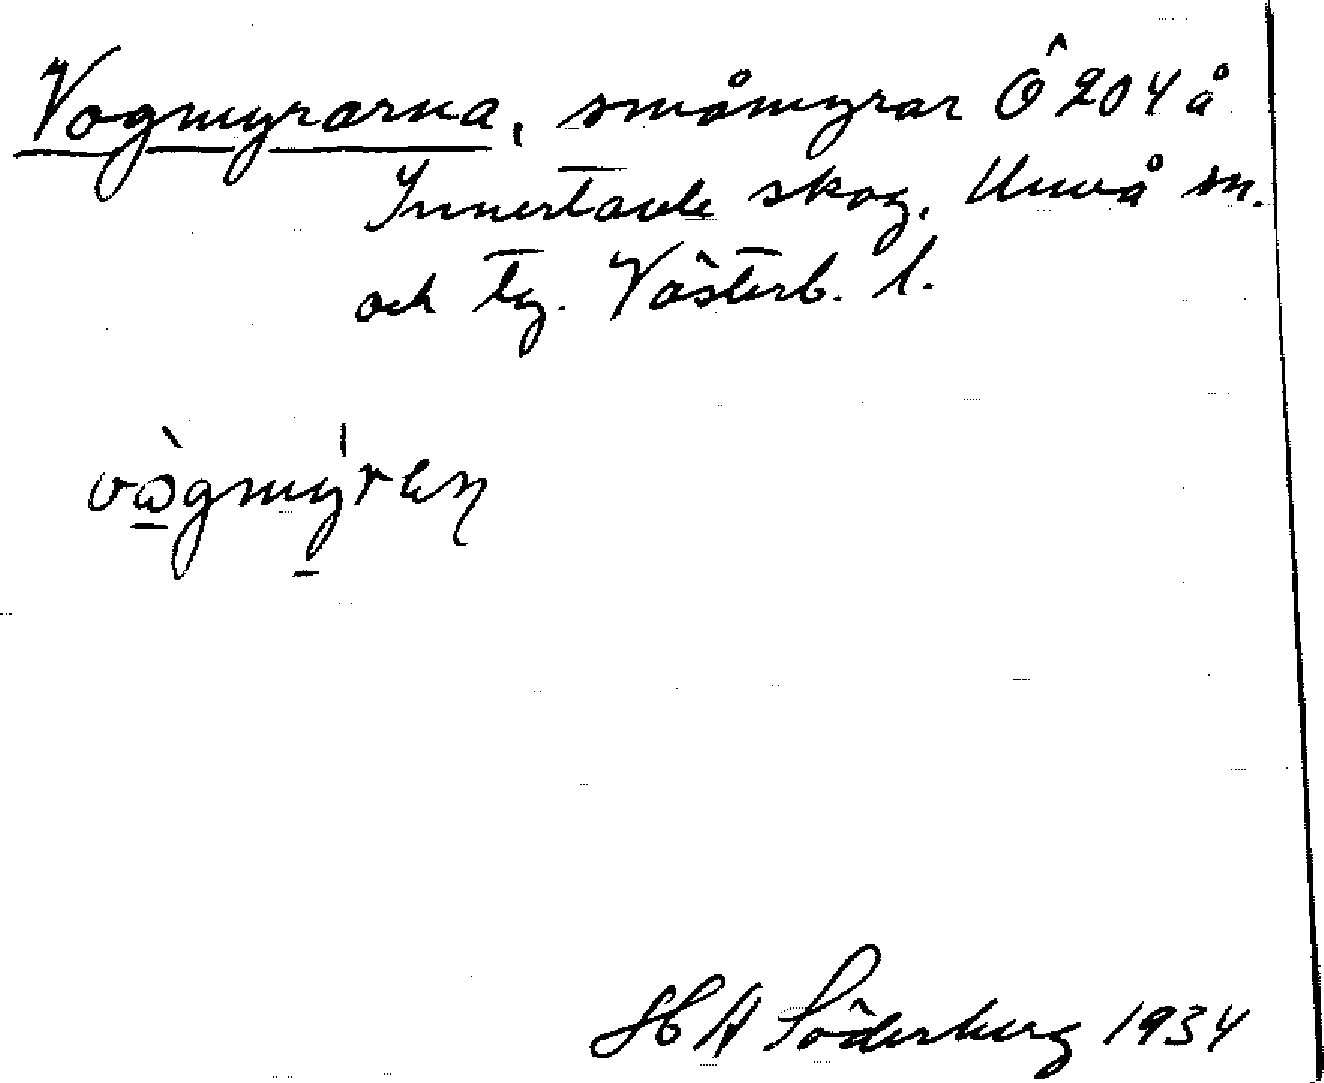 Vogmyrarna, småmyrar Ö 204 å
Innertavle skog, Umeå sn.
och tg. Västerb. l.
H A Söderberg 1934